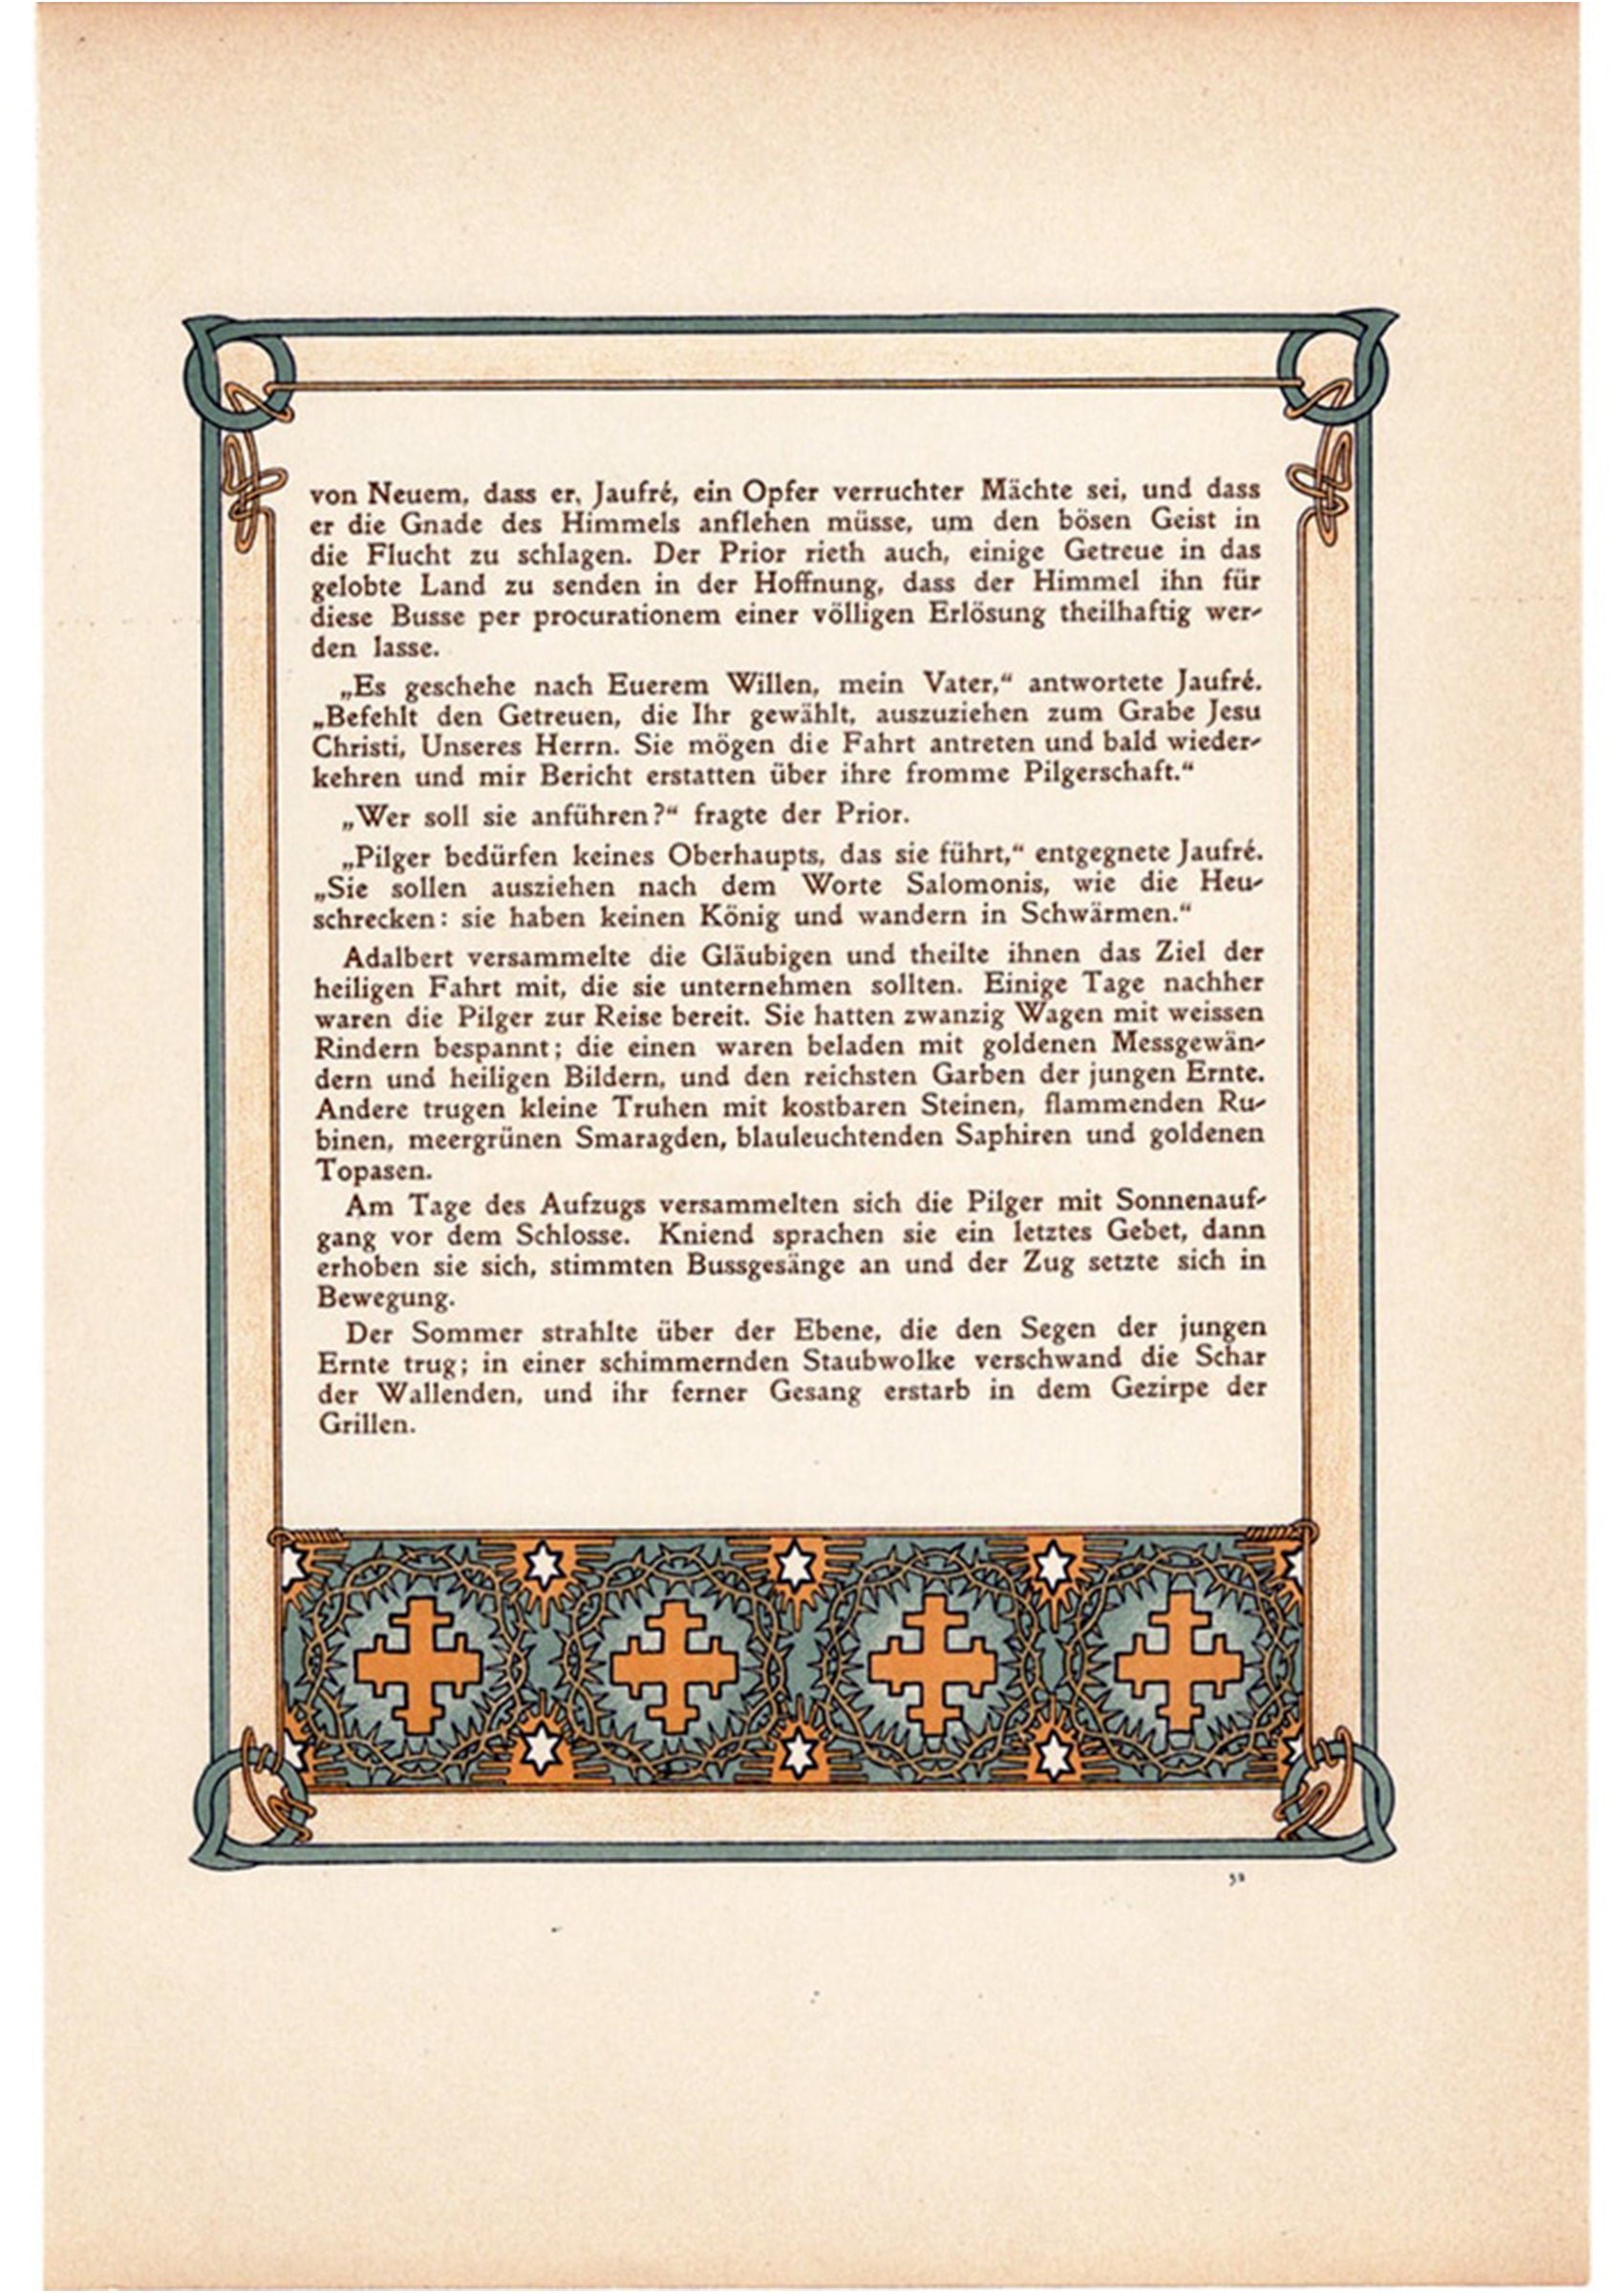 von Neuem, dass er, Jaufré, ein Opfer verruchter Mächte sei, und dass
er die Gnade des Himmels anflehen müsse, um den bösen Geist in
die Flucht zu schlagen. Der Prior rieth auch, einige Getreue in das
gelobte Land zu senden in der Hoffnung, dass der Himmel ihn für
diese Busse per procurationem einer völligen Erlösung theilhaftig wer-
den lasse.
„Es geschehe nach Euerem Willen, mein Vater,“ antwortete Jaufré.
„Befehlt den Getreuen, die Ihr gewählt, auszuziehen zum Grabe Jesu
Christi, Unseres Herrn. Sie mögen die Fahrt antreten und bald wieder-
kehren und mir Bericht erstatten über ihre fromme Pilgerschaft.“
„Wer soll sie anführen?“ fragte der Prior.
„Pilger bedürfen keines Oberhaupts, das sie führt,“ entgegnete Jaufré.
„Sie sollen ausziehen nach dem Worte Salomonis, wie die Heu-
schrecken: sie haben keinen König und wandern in Schwärmen.“
Adalbert versammelte die Gläubigen und theilte ihnen das Ziel der
heiligen Fahrt mit, die sie unternehmen sollten. Einige Tage nachher
waren die Pilger zur Reise bereit. Sie hatten zwanzig Wagen mit weissen
Rindern bespannt; die einen waren beladen mit goldenen Messgewän-
dern und heiligen Bildern, und den reichsten Garben der jungen Ernte.
Andere trugen kleine Truhen mit kostbaren Steinen, flammenden Ru-
binen, meergrünen Smaragden, blauleuchtenden Saphiren und goldenen
Topasen.
Am Tage des Aufzugs versammelten sich die Pilger mit Sonnenauf-
gang vor dem Schlosse. Kniend sprachen sie ein letztes Gebet, dann
erhoben sie sich, stimmten Bussgesänge an und der Zug setzte sich in
Bewegung.
Der Sommer strahlte über der Ebene, die den Segen der jungen
Ernte trug; in einer schimmernden Staubwolke verschwand die Schar
der Wallenden, und ihr ferner Gesang erstarb in dem Gezirpe der
Grillen.